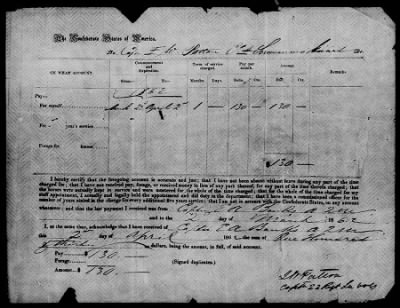 The Confederate States of America,
ON WHAT ACCOUNT.
Commencement and Expiration.
Term of service charged.
Pay per month.
Amount.
Months. Days. Dolls. Cts. Dolls. Cts.
Pay— 1862
For myself 1 — 130 — 130 —
For years' service
Forage for horses
130 —
I hereby certify that the foregoing account is accurate and just; that I have not been absent without leave during any part of the time
charged for; that I have not received pay, forage, or received money in lieu of any part thereof, for any part of the time therein charged; that the
horses were actually kept in service and were mustered for the whole of the time charged; that for the whole of the time charged for my
staff appointment, I actually and legally held the appointment and did duty in the department; that I have been a commissioned officer for the
number of years stated in the charge for every additional five years service; that I am not in arrears with the Confederate States, on any account
whatsoever; and that the last payment I received was from Capt E A Banks A Q M
and to the day of 1862
I, at the same time, acknowledge that I have received of Capt E A Banks A Q M
this 2 day of April 186 One Hundred
& Thirty dollars, being the amount, in full, of said account.
Pay $130.—
Forage
Amount $130.—
(Signed duplicates.)